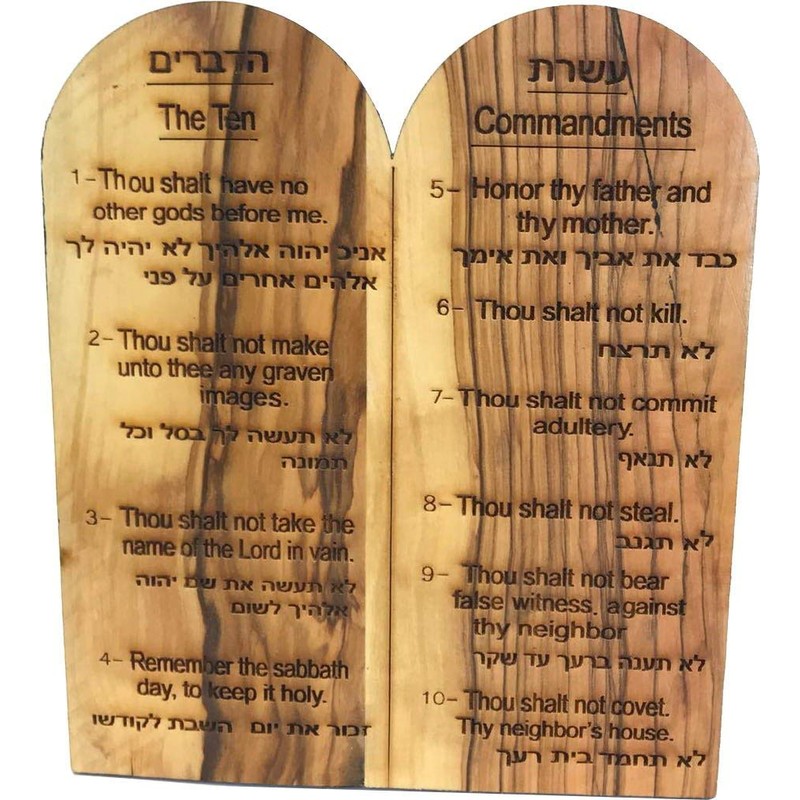 הדברים
The Ten
1-Thou shalt have no
other gods before me.
אניכ יהוה אלהיך לא יהיה לך
אלהים אחרים על פני
2-Thou shalt not make
unto thee any graven
images.
לא תעשה לך בסל וכל
תמונה
3- Thou shalt not take the
name of the Lord in vain.
לא תעשה את שם יהוה
אלהיך לשום
4- Remember the sabbath
day, to keep it holy.
זכור את יום השבת לקודשו
עשרת
Commandments
5- Honor thy father and
thy mother.
כבד את אביך ואת אימך
6- Thou shalt not kill.
לא תרצח
7-Thou shalt not commit
adultery.
לא תנאף
8-Thou shalt not steal.
לא תגנב
9- Thou shalt not bear
false witness. against
thy neighbor
לא תענה ברעך עד שקר
10-Thou shalt not covet.
Thy neighbor's house.
לא תחמד בית רעך